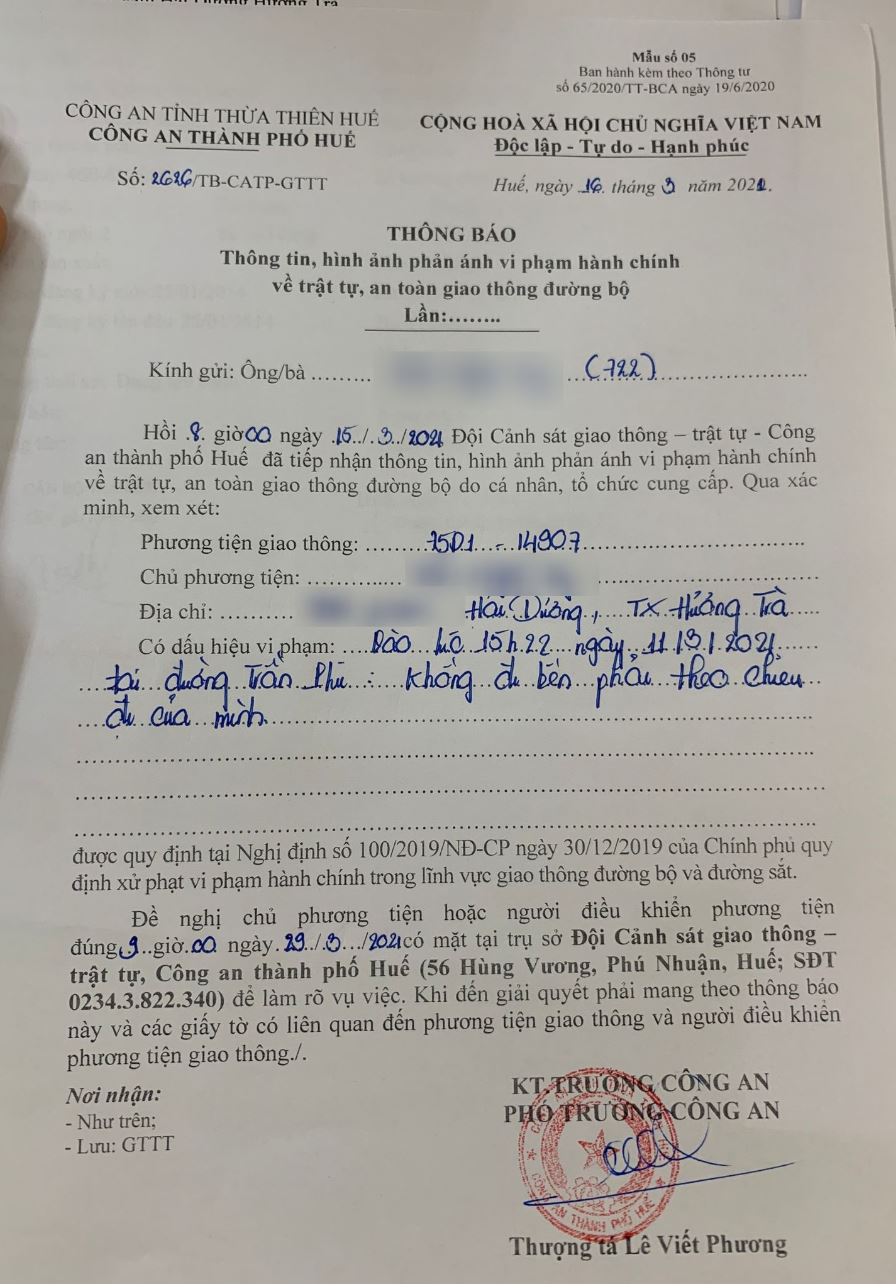 Mẫu số 05
Ban hành kèm theo Thông tư
số 65/2020/TT-BCA ngày 19/6/2020
CÔNG AN TỈNH THỪA THIÊN HUẾ
CÔNG AN THÀNH PHỐ HUẾ
Số: 2626/TB-CATP-GTTT
CỘNG HOÀ XÃ HỘI CHỦ NGHĨA VIỆT NAM
Độc lập - Tự do - Hạnh phúc
Huế, ngày 16 tháng 3 năm 2021.
THÔNG BÁO
Thông tin, hình ảnh phản ánh vi phạm hành chính
về trật tự, an toàn giao thông đường bộ
Lần:........
Kính gửi: Ông/bà ......... (722)
Hồi 8 giờ 00 ngày 15/3/2021 Đội Cảnh sát giao thông – trật tự - Công
an thành phố Huế đã tiếp nhận thông tin, hình ảnh phản ánh vi phạm hành chính
về trật tự, an toàn giao thông đường bộ do cá nhân, tổ chức cung cấp. Qua xác
minh, xem xét:
Phương tiện giao thông: 75D1 - 14907
Chủ phương tiện: ............
Địa chỉ: .......... Hải Dương, TX Hương Trà
Có dấu hiệu vi phạm: Vào lúc 15h22 ngày 11/3/2021
tại đường Trần Phú : không đi bên phải theo chiều
đi của mình
được quy định tại Nghị định số 100/2019/NĐ-CP ngày 30/12/2019 của Chính phủ quy
định xử phạt vi phạm hành chính trong lĩnh vực giao thông đường bộ và đường sắt.
Đề nghị chủ phương tiện hoặc người điều khiển phương tiện
đúng 9 giờ 00 ngày 29/3/2021 có mặt tại trụ sở Đội Cảnh sát giao thông –
trật tự, Công an thành phố Huế (56 Hùng Vương, Phú Nhuận, Huế; SĐT
0234.3.822.340) để làm rõ vụ việc. Khi đến giải quyết phải mang theo thông báo
này và các giấy tờ có liên quan đến phương tiện giao thông và người điều khiển
phương tiện giao thông./.
Nơi nhận:
- Như trên;
- Lưu: GTTT
KT.TRƯỞNG CÔNG AN
PHÓ TRƯỞNG CÔNG AN
CÔNG AN THÀNH PHỐ HUẾ
Thượng tá Lê Viết Phương